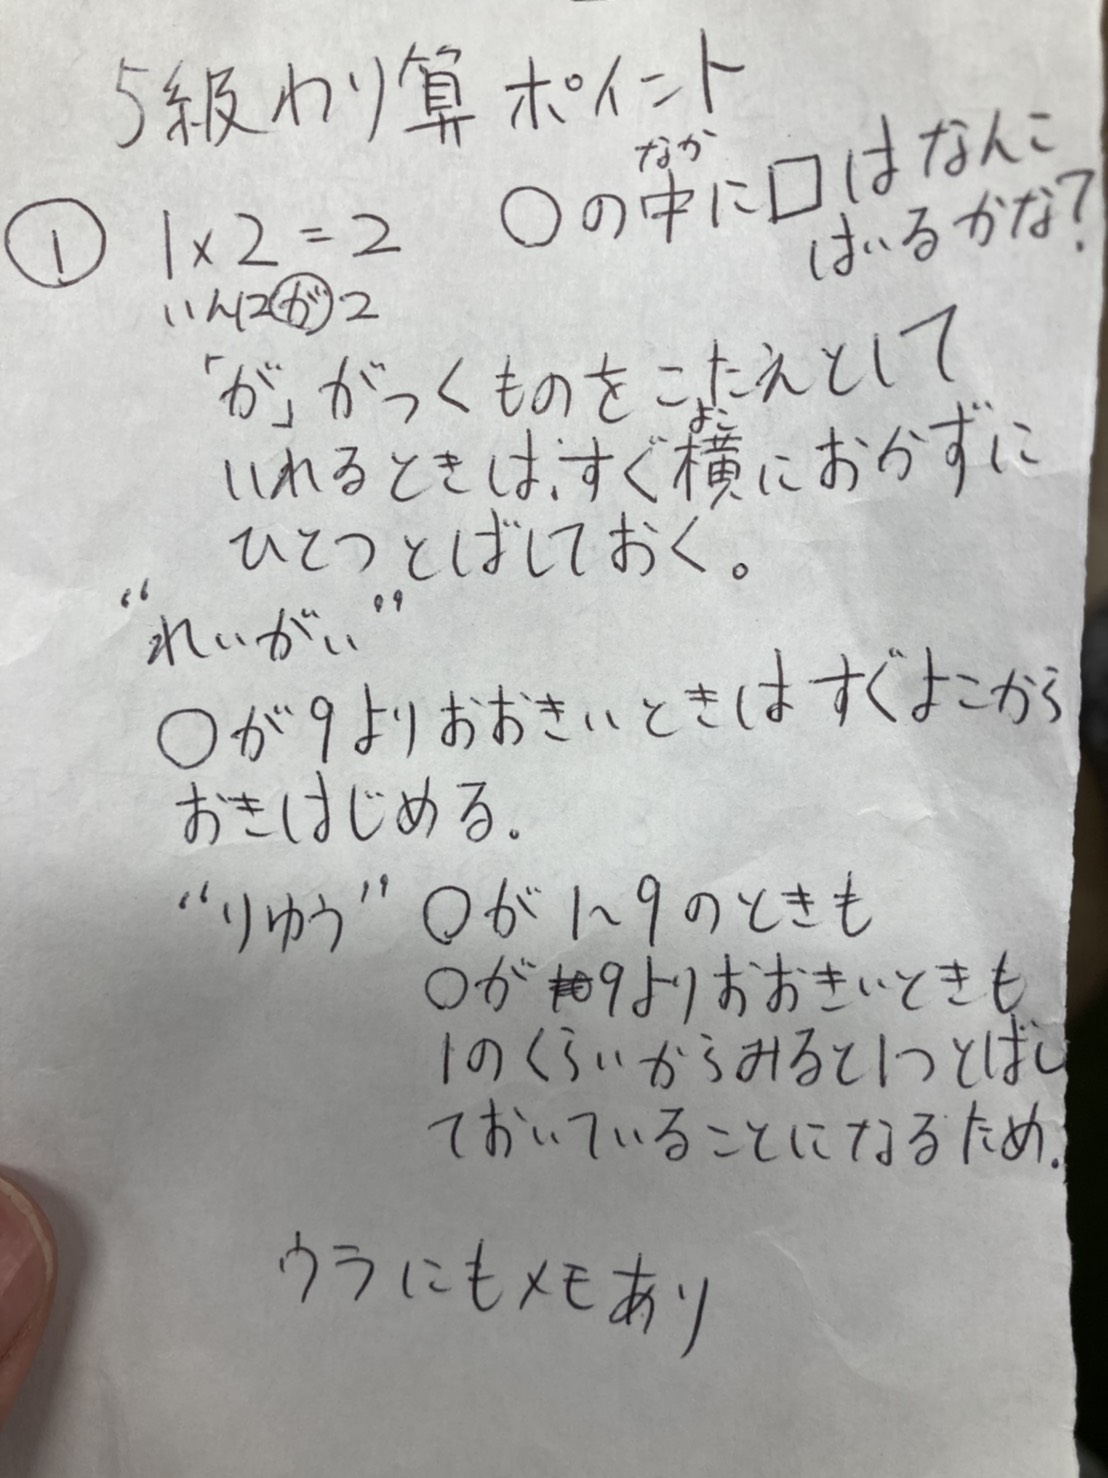 5級わり算ポイント
○の中に□はなんこ
なか
はいるかな?
① 1×2=2
いんにが2
「が」がつくものをこたえとして
いれるときは、すぐ横におかずに
よこ
ひとつとばしておく。
“れいがい”
○が9よりおおきいときはすぐよこから
おきはじめる.
“りゆう” ○が1~9のときも
○が9よりおおきいときも
1のくらいからみると1つとばし
ておいていることになるため.
ウラにもメモあり